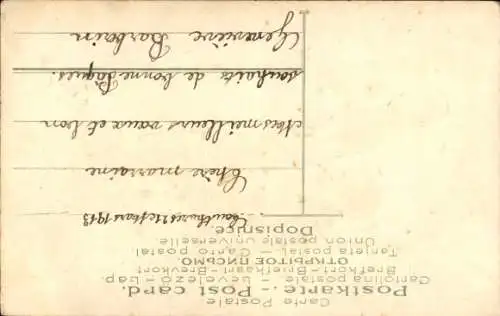 Carte Postale
Postkarte. - Post card.
Cartolina postale - Levelező-Lap.
Brefkort-Briefkaart-Brevkort
ОТКРЫТОЕ ПИСЬМО.
Tarjeta postal - Carto postal
Union postale universelle
Dopisnice.
Mars 1913
Chère marraine
Mes meilleurs vœux et bon
souhaits de bonne Pâques.
Geneviève Barboin